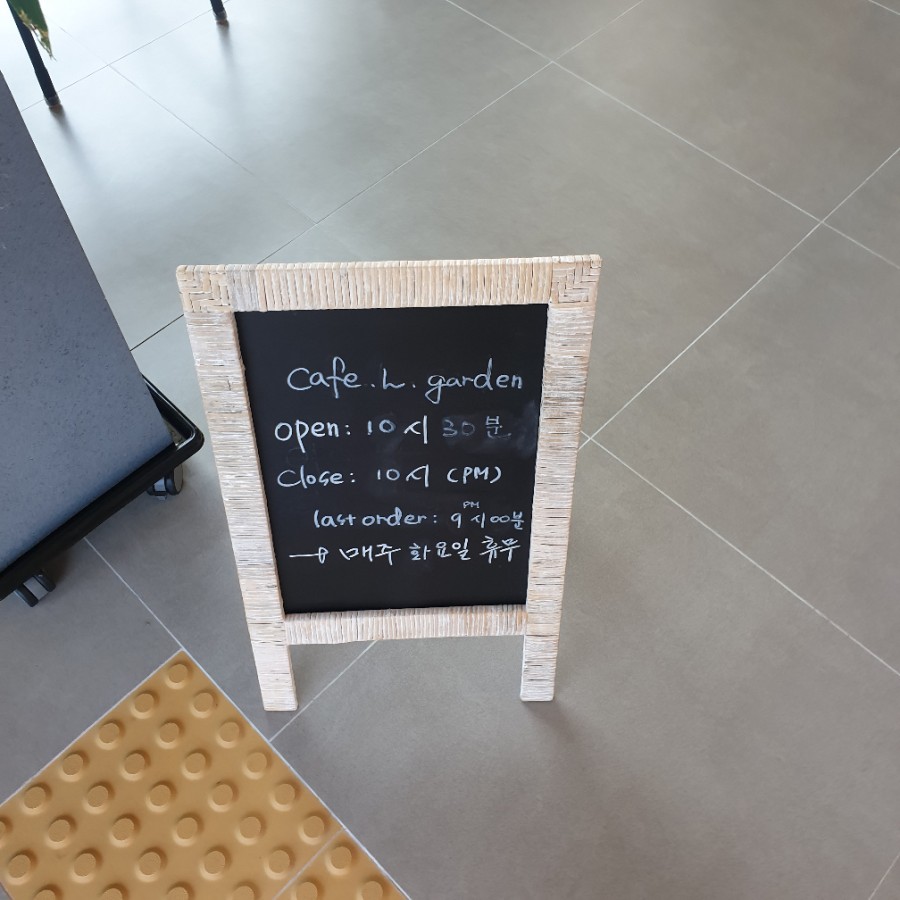 Cafe. L. garden
open: 10시 30분
Close: 10시 (PM)
last order: 9시00분
PM
→ 매주 화요일 휴무